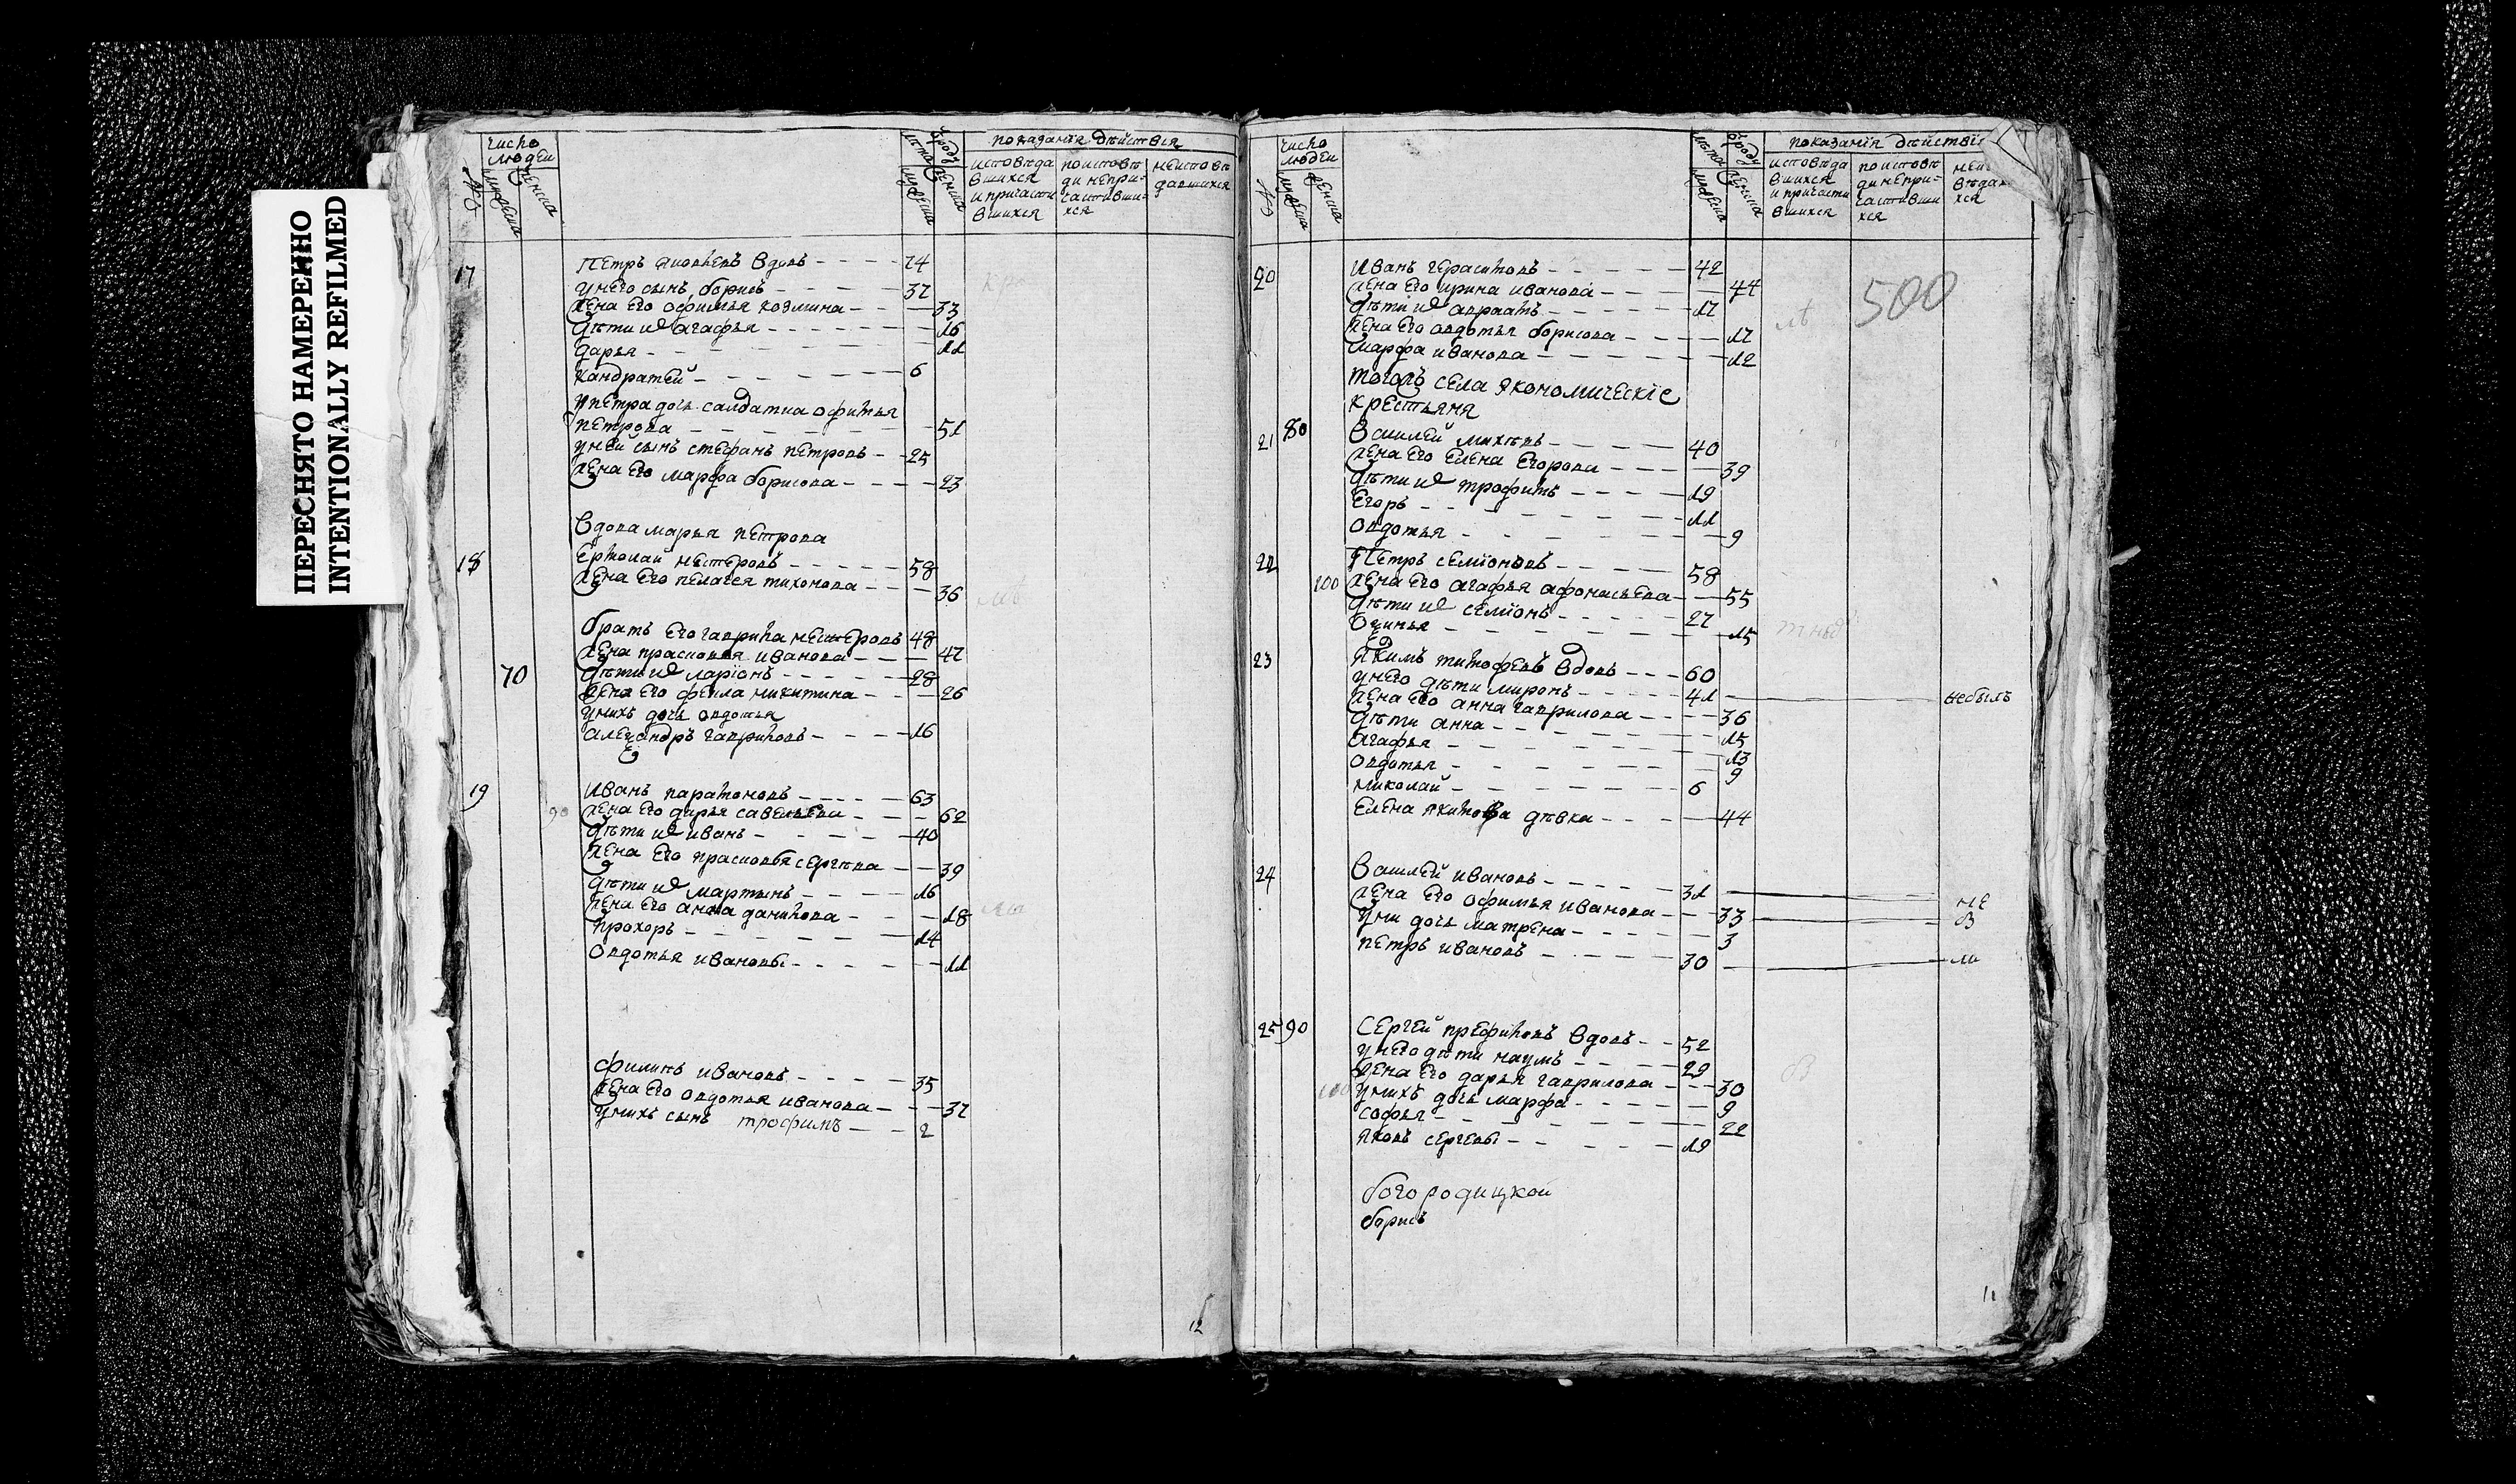 ПЕРЕСНЯТО НАМЕРЕННО
INTENTIONALLY REFILMED
число людей
№
мужеска
женска
лѣта
мужеска
женска
показанія дѣйствія
исповѣда
вшихся
и причасти
вшихся
поисповѣ
ди непри-
частивши-
хся
неисповѣ
давшихся
17
Петръ яковлевъ вдовъ 74
у него сынъ борисъ 37
жена его офимья козмина 33
дѣти ихъ агафья 16
дарья 11
кандратей 6
у петра дочь салдатка офимья
петрова 51
у ней сынъ стефанъ петровъ 25
жена его марфа борисова 23
вдова марья петрова
18
Ермолай нестеровъ 58
жена его пелагея тихонова 36
братъ его гаврила нестеровъ 48
жена прасковья иванова 47
70
дѣти ихъ ларіонъ 28
жена его фекла микитина 26
у нихъ дочь овдотья
александръ гавриловъ 16
19
Иванъ парамоновъ 63
90
жена его дарья савельева 62
дѣти ихъ иванъ 40
жена его прасковья сергѣева 39
дѣти ихъ мартынъ 16
жена его анна данилова 18
прохоръ 14
овдотья ивановы 11
филипъ ивановъ 35
жена его овдотья иванова 37
у нихъ сынъ трофимъ 2
12
число людей
№
мужеска
женска
лѣта
мужеска
женска
показанія дѣйстві
исповѣда
вшихся
и причасти
вшихся
поисповѣ
ди непри-
частивши
хся
хся
20
Иванъ герасимовъ 42
жена его ирина иванова 44
дѣти ихъ авраамъ 17
жена его овдотья борисова 17
марфа иванова 12
500
тогожъ села экономическіе
крестьяня
21 80
Василей михѣевъ 40
жена его Елена Егорова 39
дѣти ихъ трофимъ 19
Егоръ 11
овдотья 9
22
Петръ семіоновъ 58
100
жена его агафья афонасьева 55
дѣти ихъ семіонъ 27
15
23
якимъ тимофеевъ вдовъ 60
у него дѣти миронъ 41 небылъ
жена его анна гаврилова 36
дѣти анна 15
агафья 13
овдотья 9
николай 6
Елена якимова дѣвка 44
24
Василей ивановъ 31 не
жена его офимья иванова 33
у ни дочь матрена 3
петръ ивановъ 30
25 90
Сергей трефиловъ вдовъ 52
у него дѣти наумъ 29
жена его дарья гаврилова 30
у нихъ дочь марфа 9
софья 22
яковъ сергеевы 19
богородицкой
борисъ